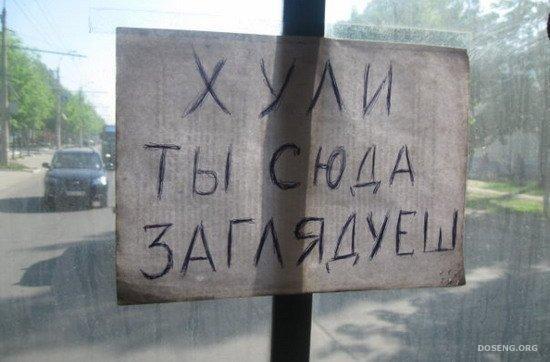 ХУЛИ
ТЫ СЮДА
ЗАГЛЯДУЕШ
DOSENG.ORG